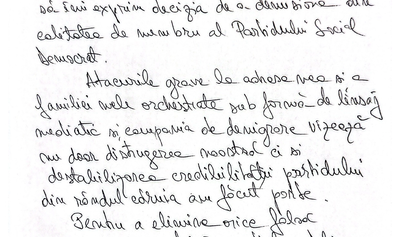 să îmi exprim decizia de a demisiona din
calitatea de membru al Partidului Social
Democrat.
Atacurile grave la adresa mea si a
familiei mele orchestrate sub formă de linsaj
mediatic și campania de denigrare vizează
nu doar distrugerea noastră ci si
destabilizarea credibilității partidului
din rândul căruia am făcut parte.
Pentru a elimina orice falsă